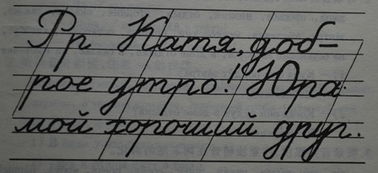 Рр Катя, доб-
рое утро! Юра
мой хороший друг.